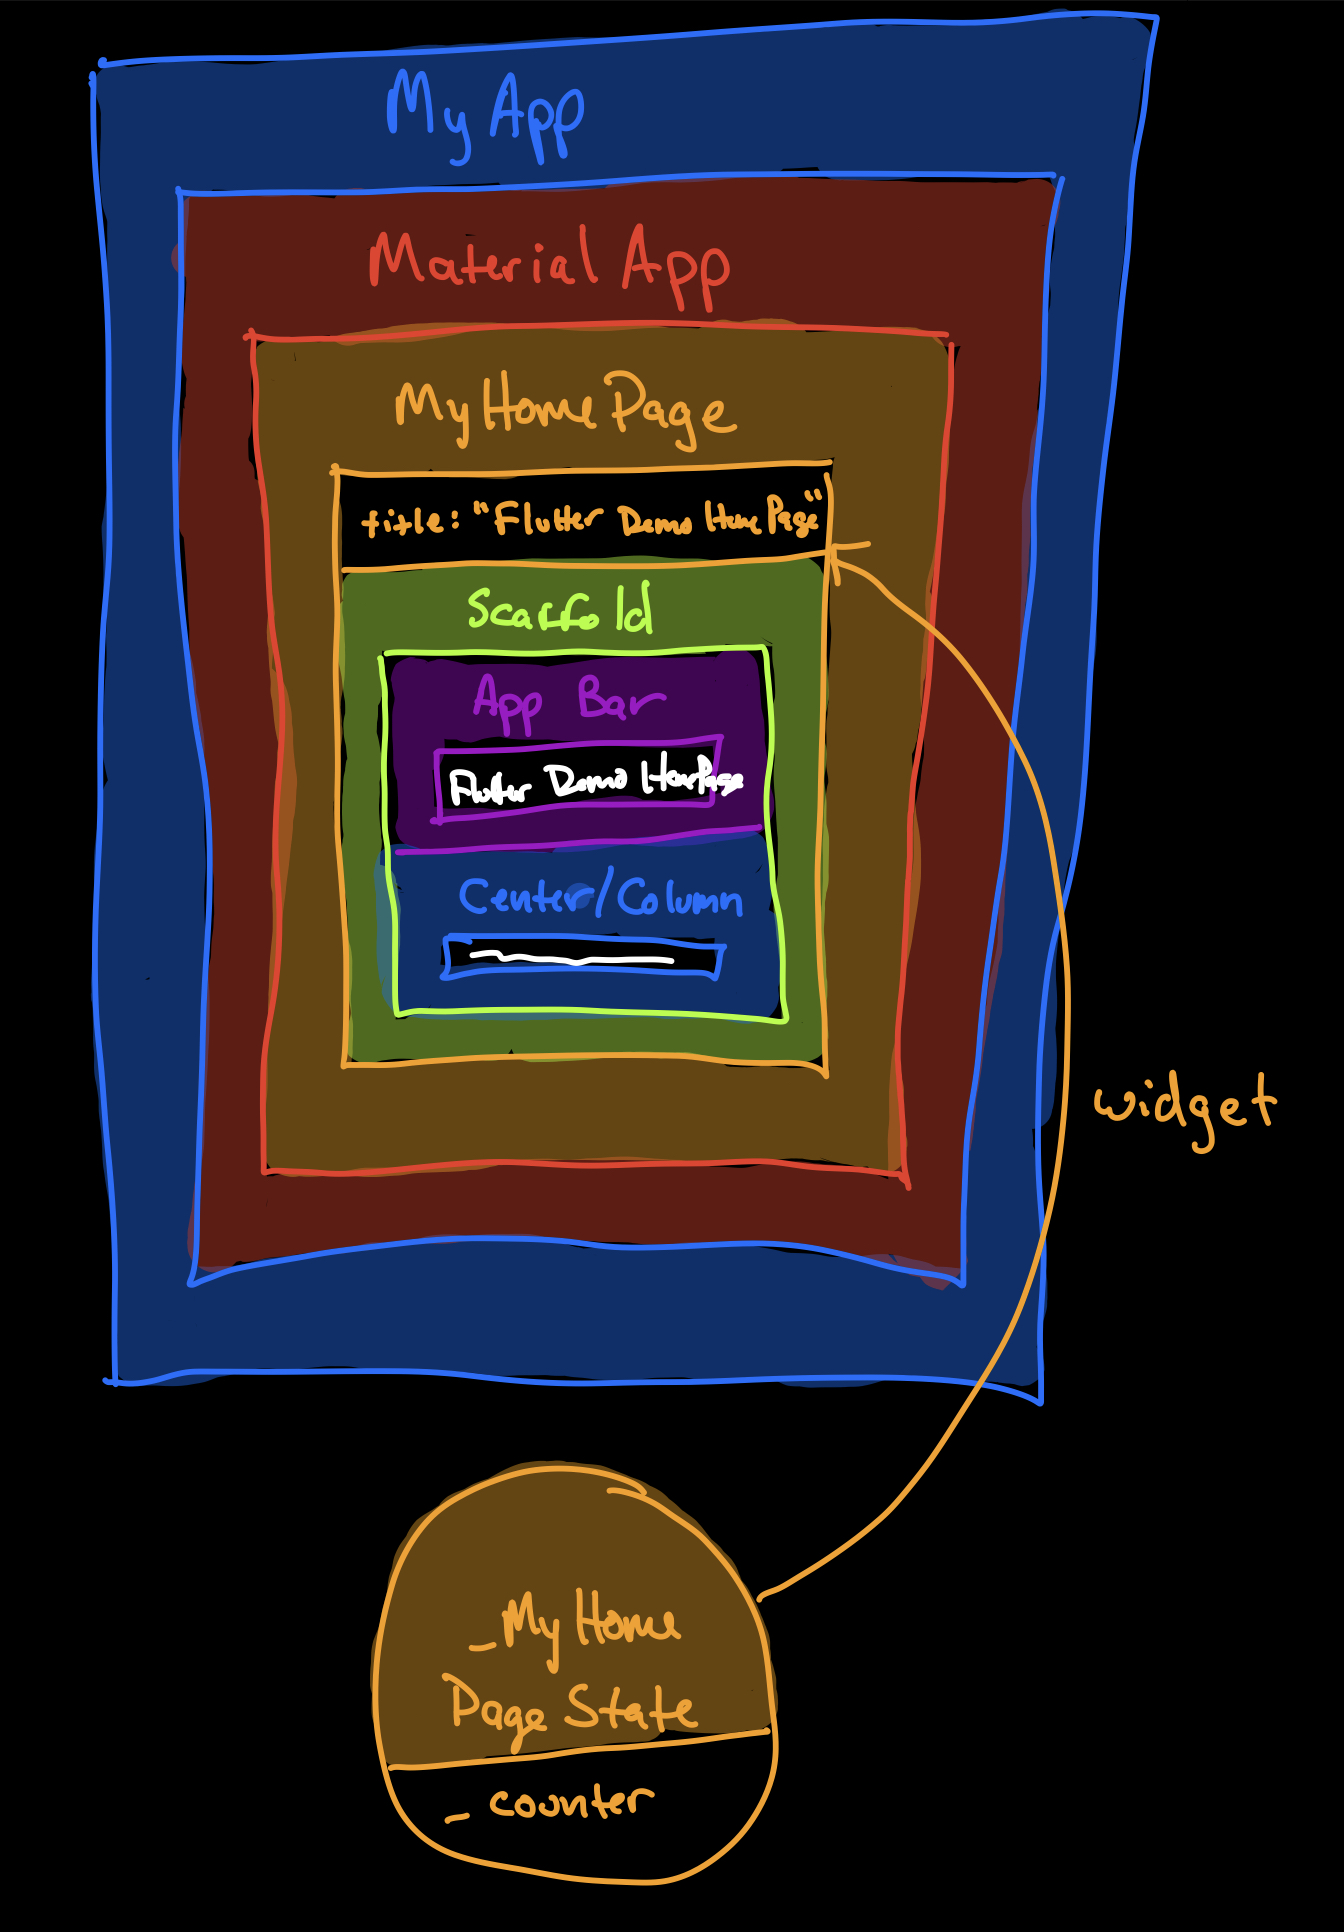 My App
Material App
MyHomePage
title: "Flutter Demo Home Page"
Scaffold
App Bar
Flutter Demo HomePage
Center/Column
widget
_My Home
Page State
_ counter